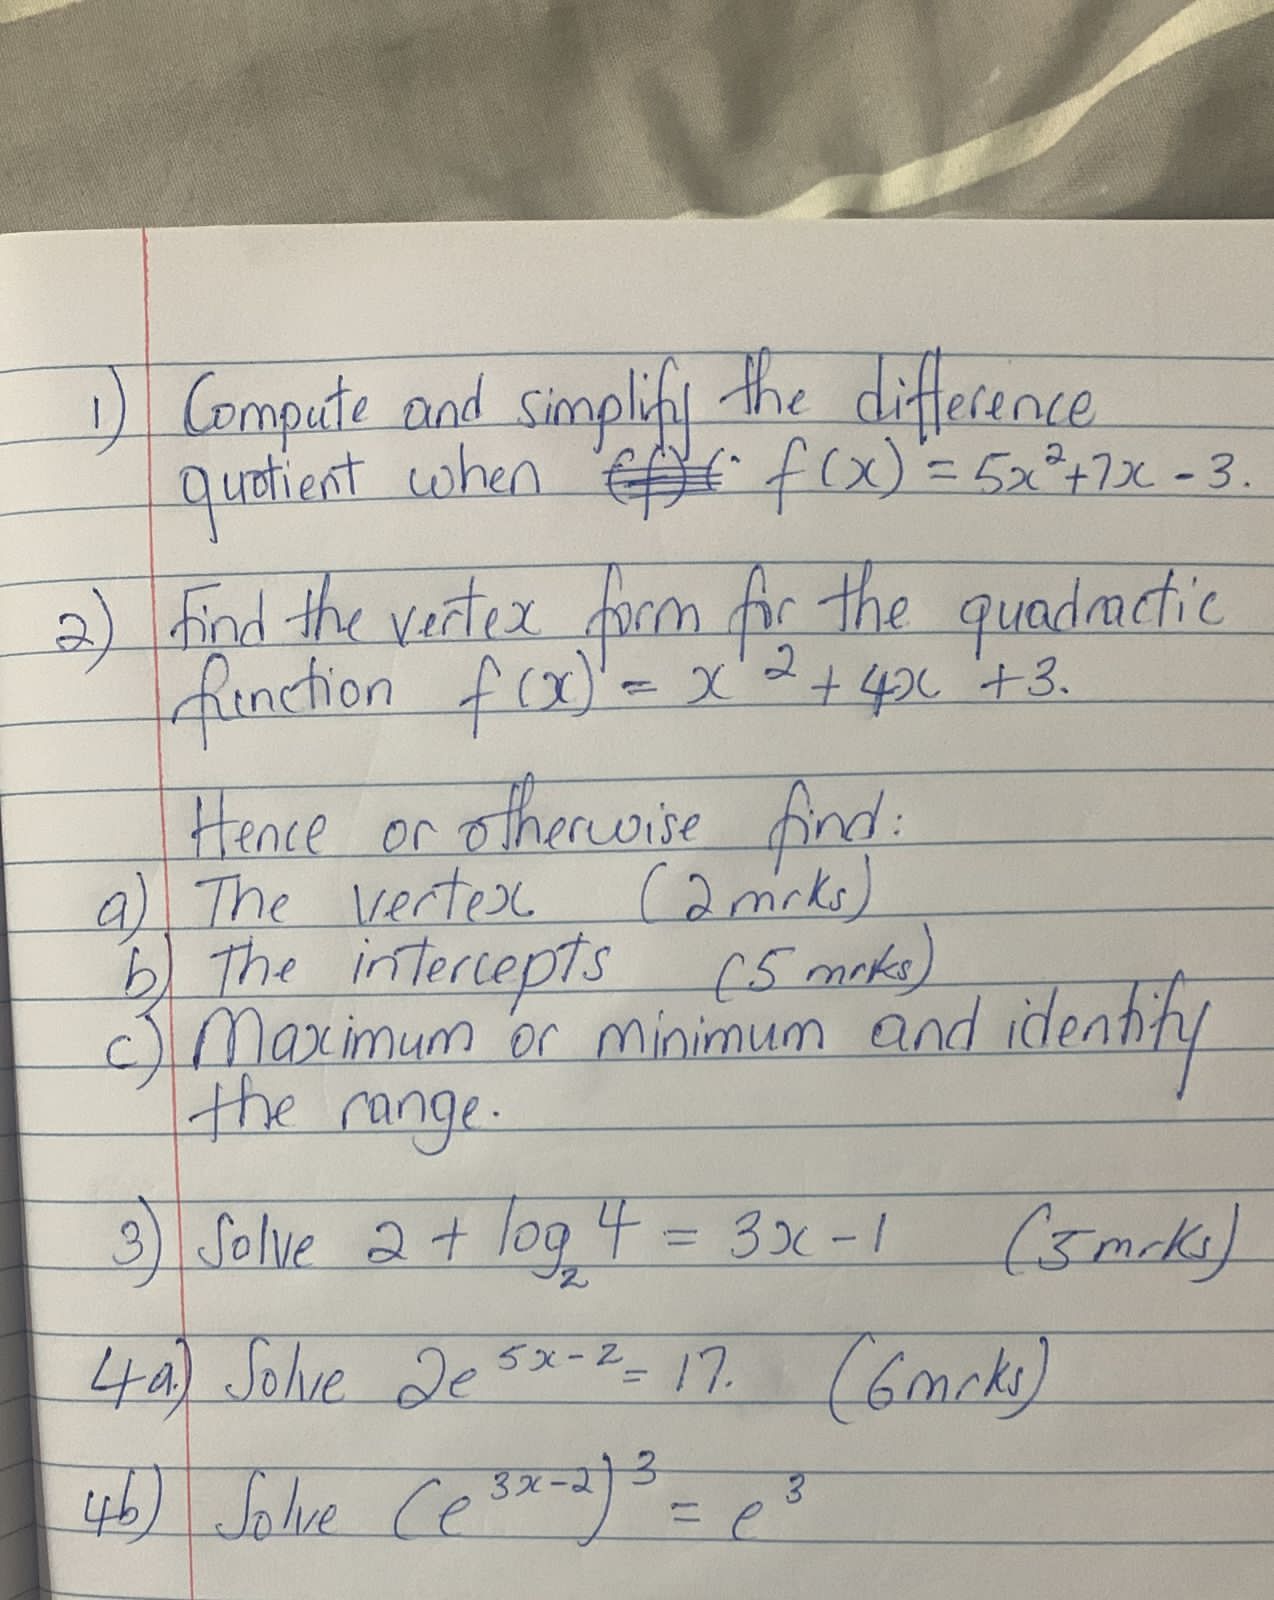 1) Compute and simplify the difference
quotient when f(x) = 5x²+7x - 3.
2) Find the vertex form for the quadractic
function f(x) = x² + 4x + 3.
Hence or otherwise find:
a) The vertex (2 mrks)
b) The intercepts (5 mrks)
c) Maximum or minimum and identify
the range.
3) Solve 2 + log₂4 = 3x - 1 (5 mrks)
4a.) Solve 2e^(5x-2) = 17. (6 mrks)
4b) Solve (e^(3x-2))³ = e³